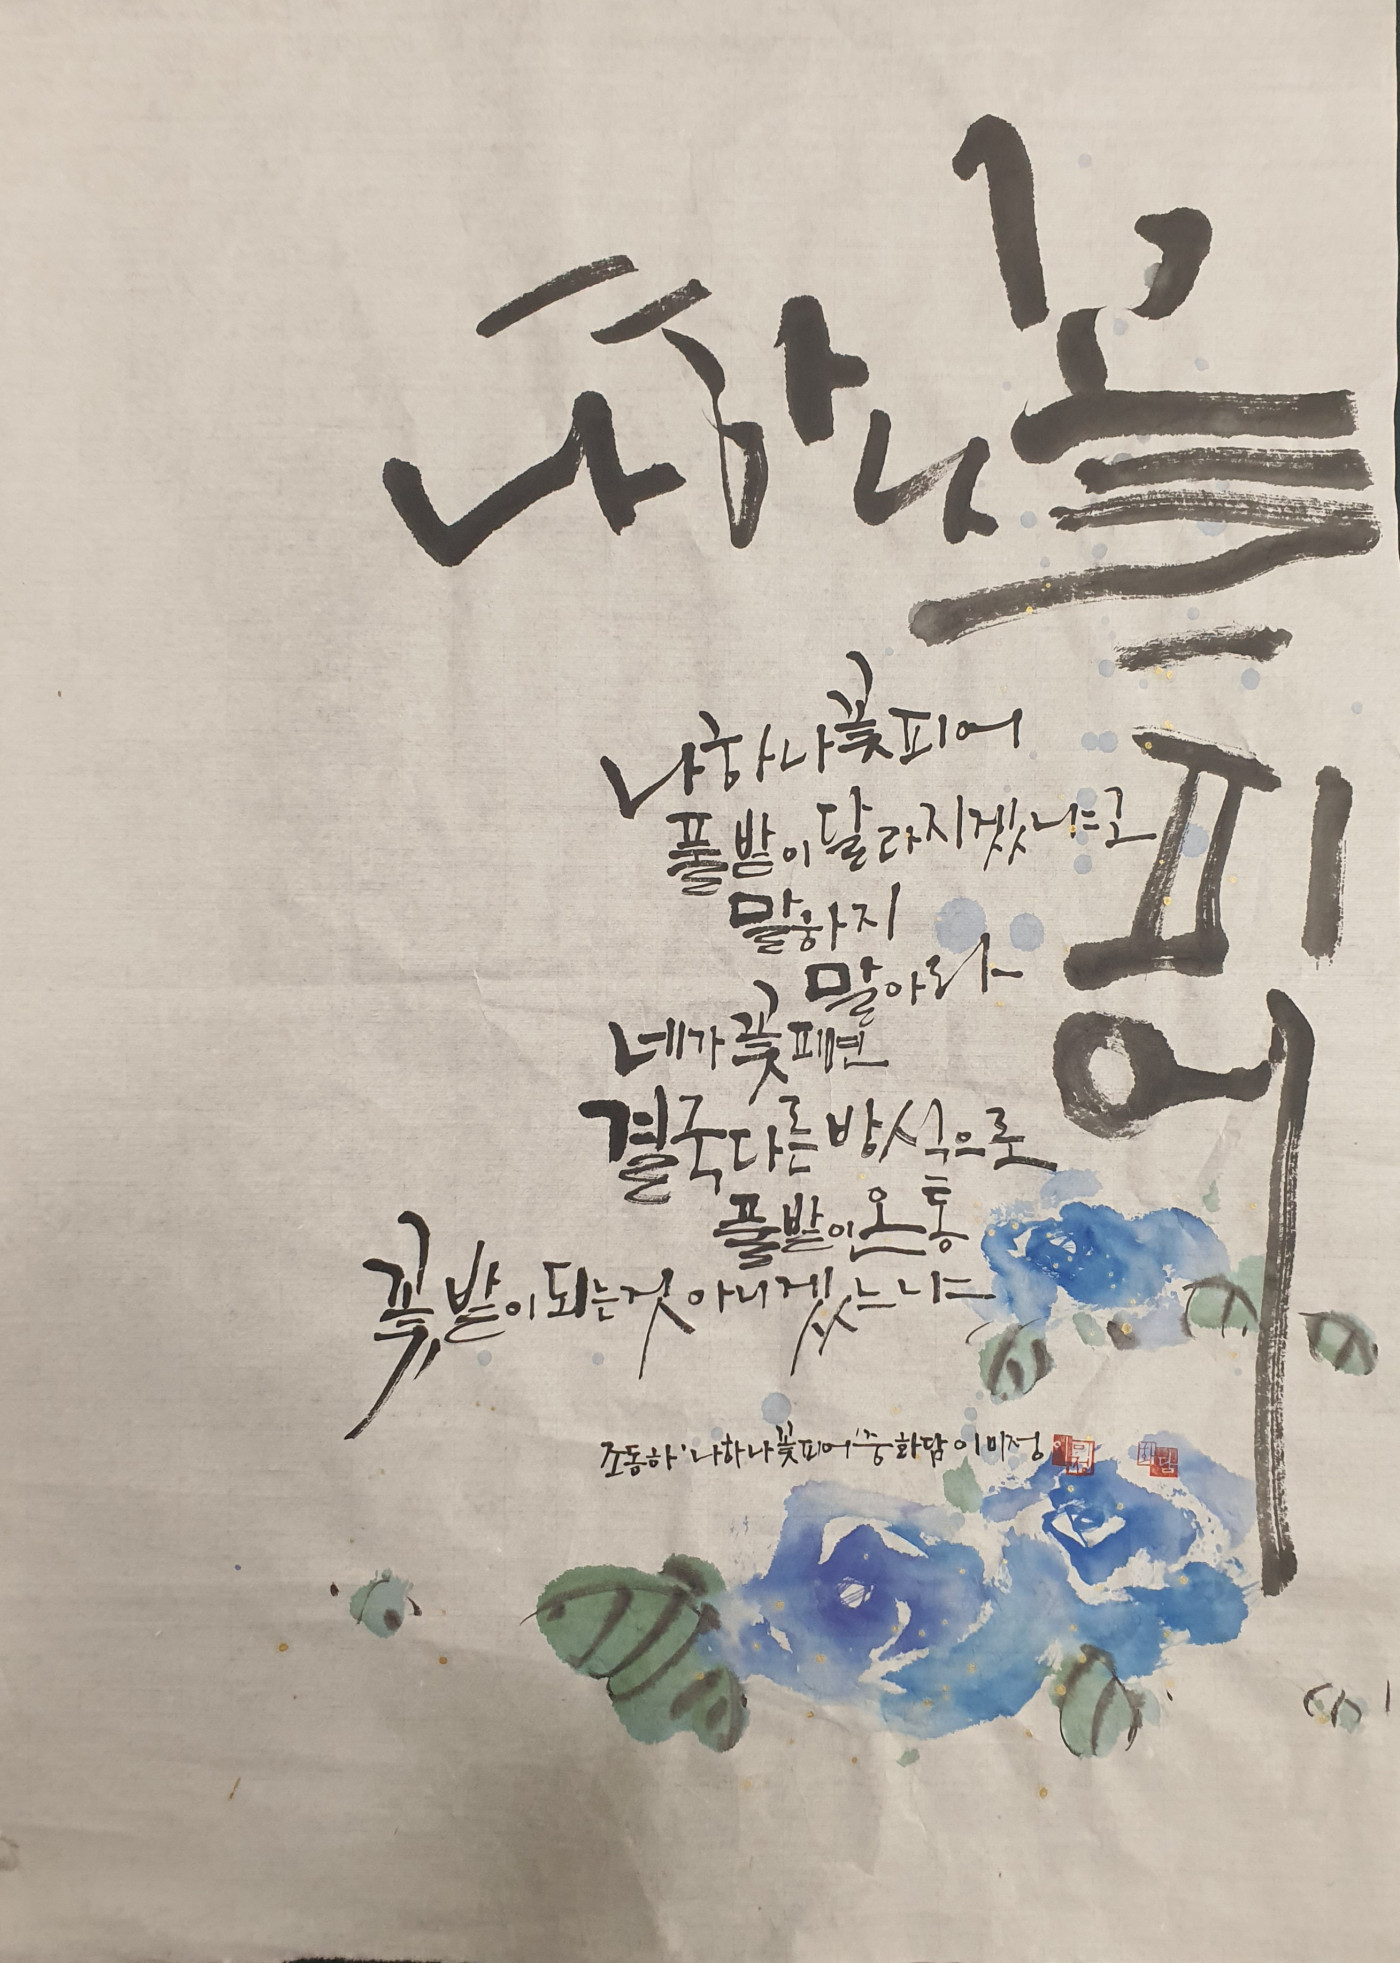 나하나
꽃
피어
나하나꽃피어
풀밭이달라지겠냐고
말하지
말아라
네가꽃피면
결국다른방식으로
풀밭이온통
꽃밭이되는것아니겠느냐
조동하'나하나꽃피어'중 화담 이미정
이미정 화담